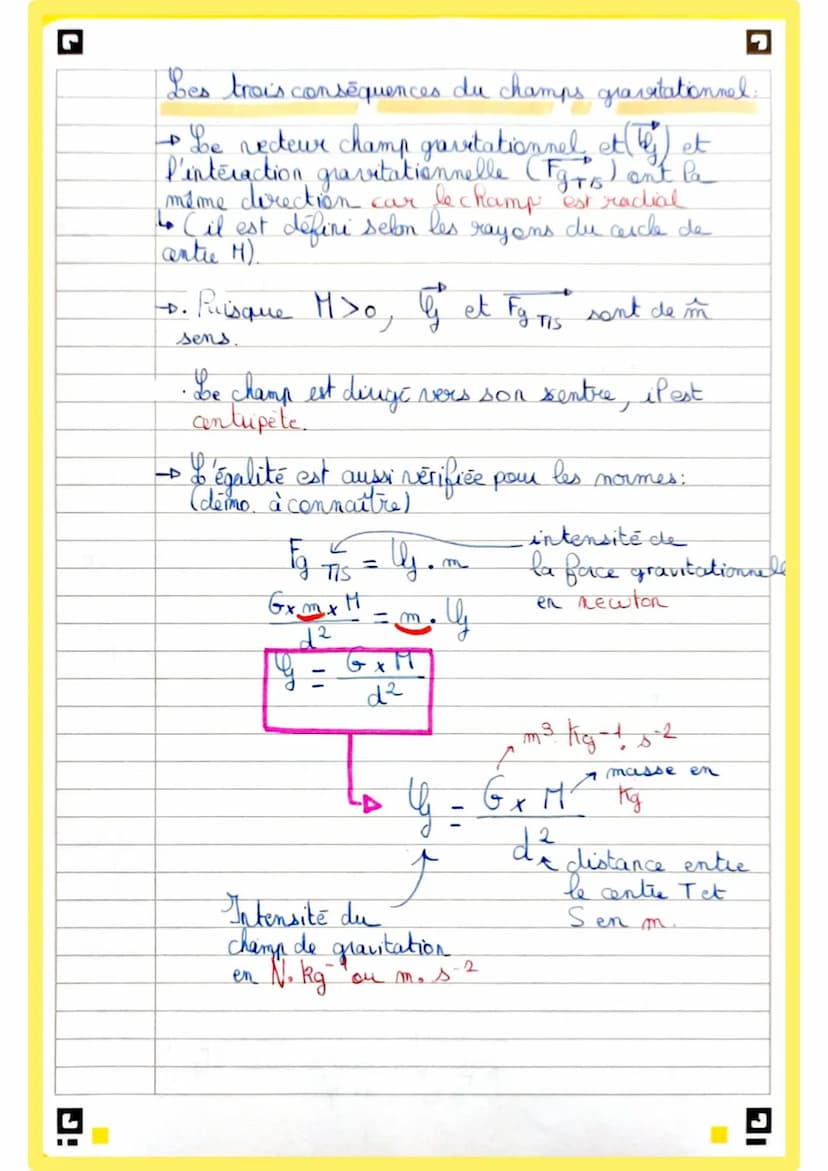 Les trois conséquences du champs gravitationnel :
→ Le vecteur champ gravitationnel et (𝒢⃗) et
l'intéraction gravitationnelle (Fg T/S⃗) ont la
même direction car le champ est radial
↳ (il est défini selon les rayons du cercle de
centre M).
→. Puisque M>0, 𝒢⃗ et Fg T/S⃗ sont de m̂
sens.
. Le champ est dirigé vers son centre, il est
centripète.
→ L'égalité est aussi vérifiée pour les normes :
(démo. à connaître)
Fg T/S = 𝒢 . m
intensité de
la force gravitationnelle
en newton
G x m x M / d² = m . 𝒢
𝒢 = G x M / d²
m³. Kg⁻¹. s⁻²
masse en
Kg
𝒢 = G x M / d²
distance entre
le centre T et
S en m.
Intensité du
champ de gravitation
en N. kg⁻¹ ou m. s⁻²